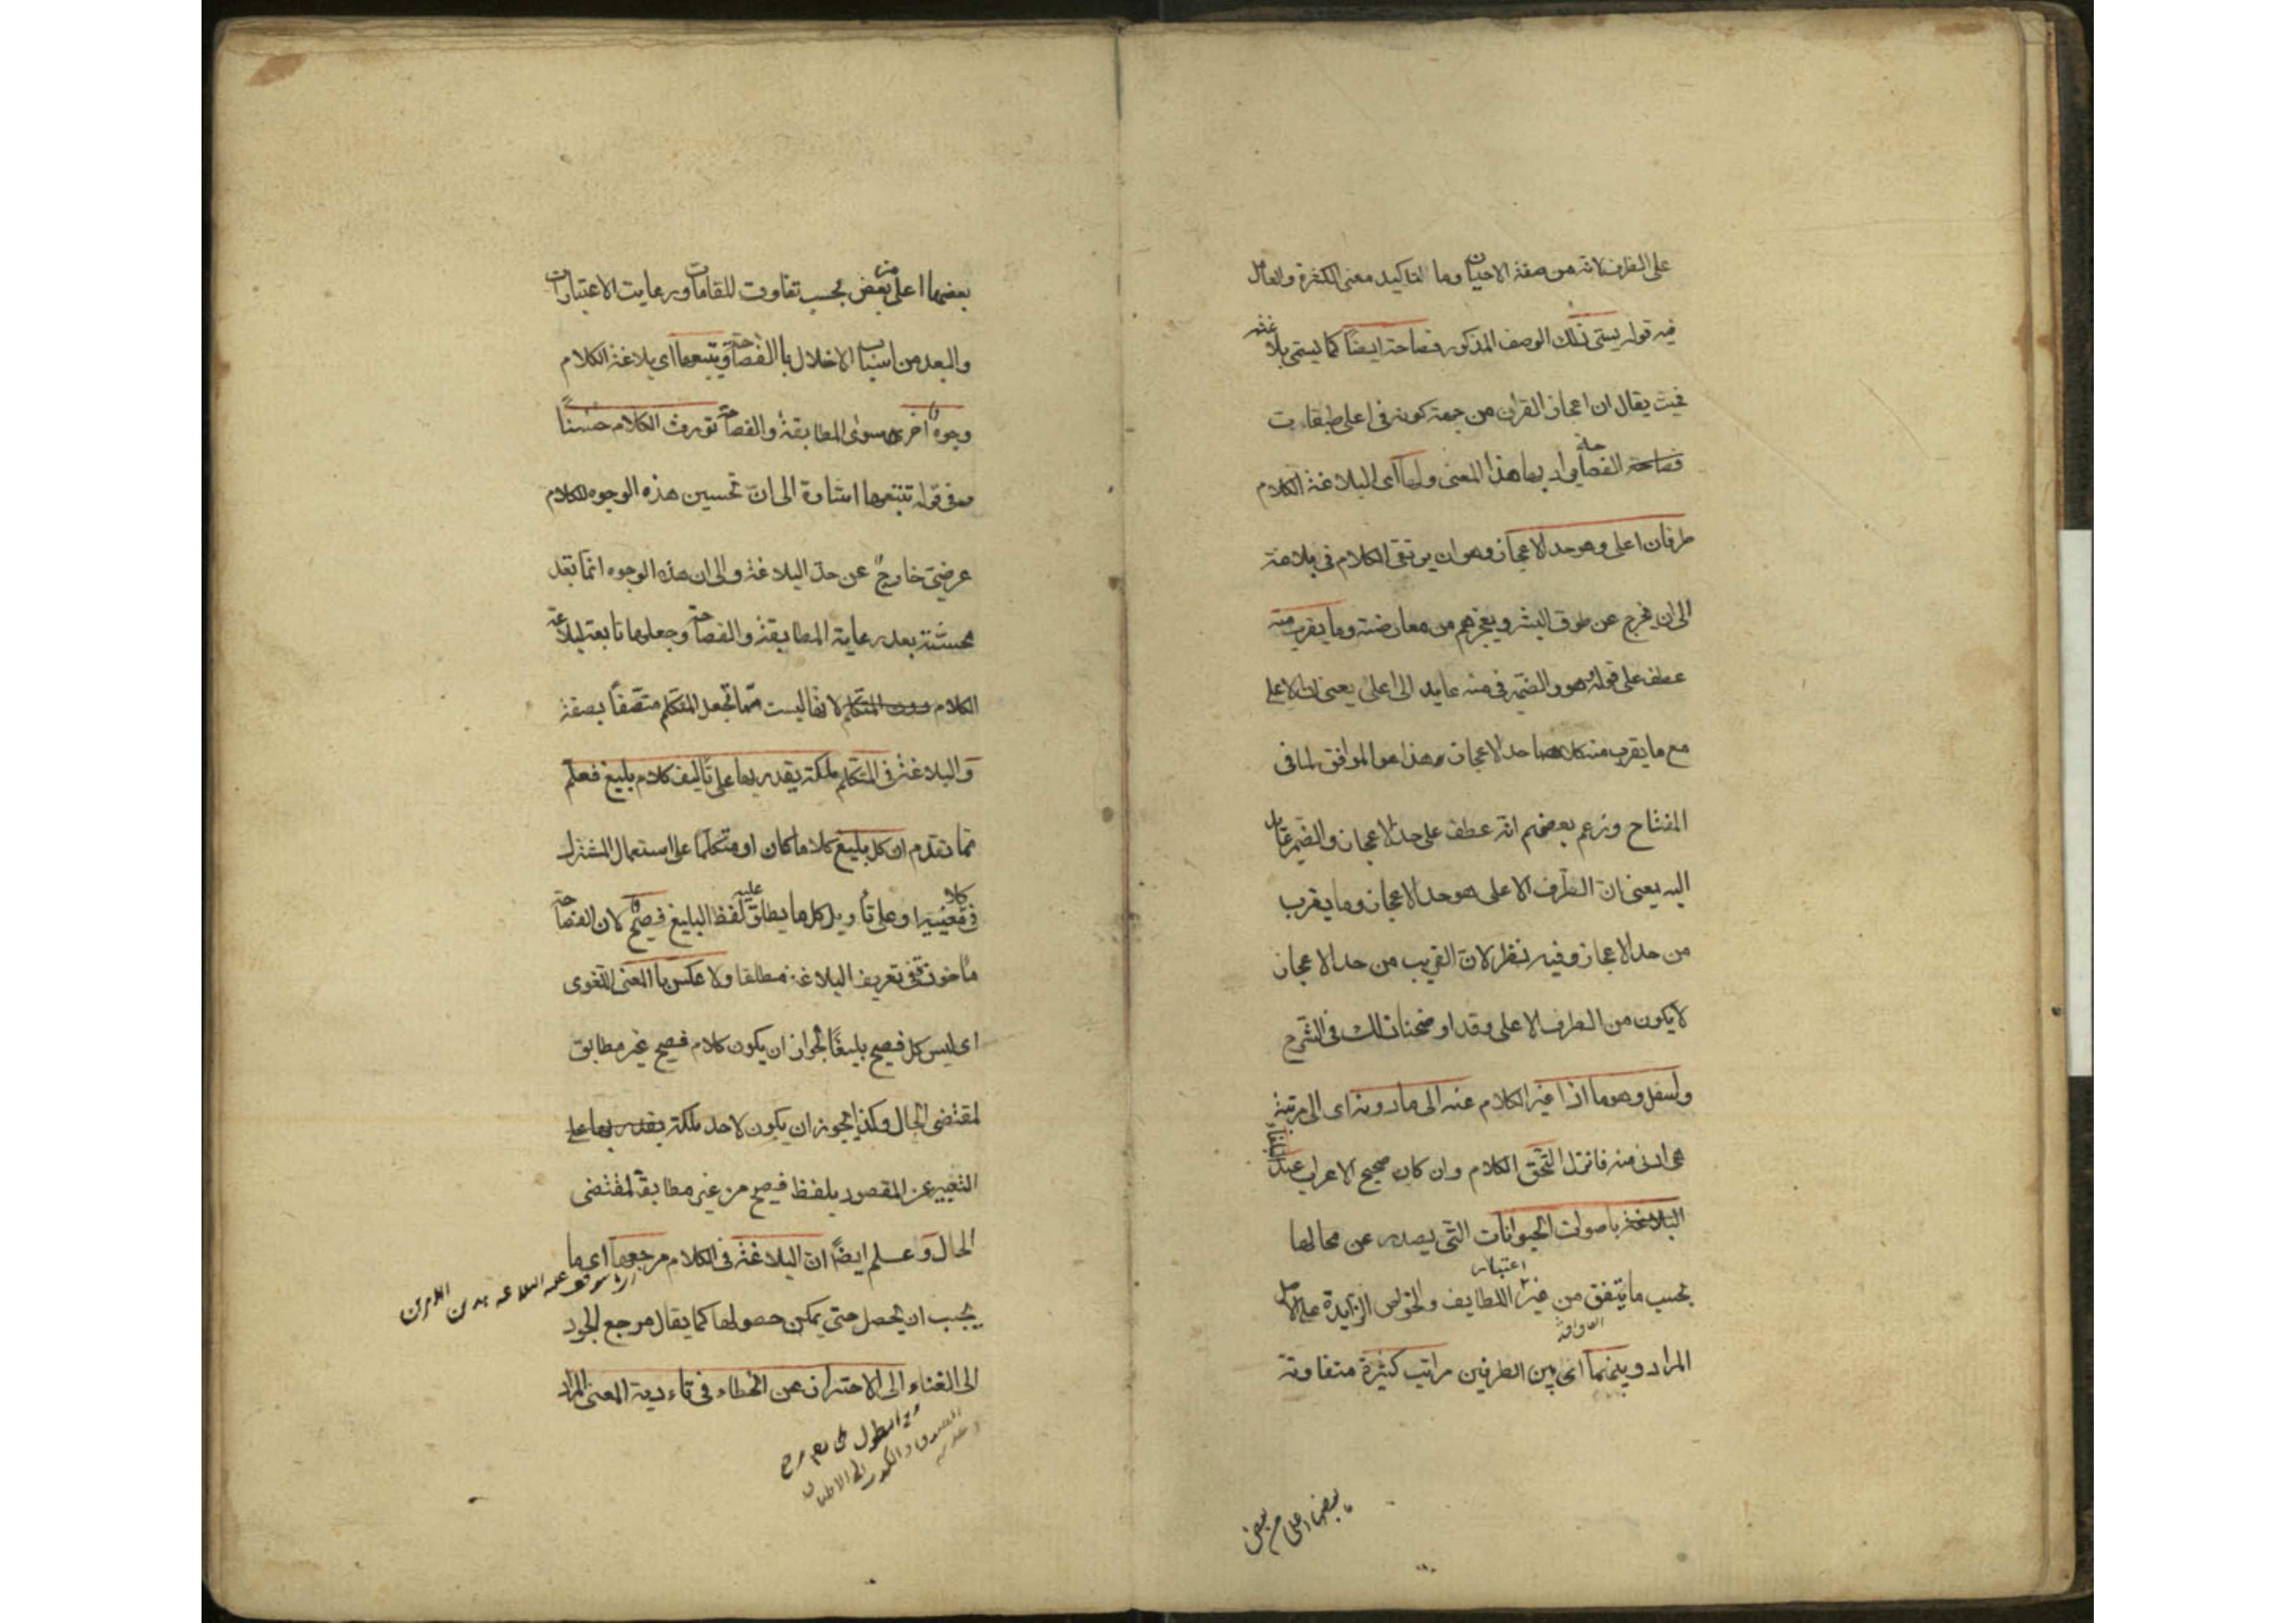 على الظرف لانه من صفة الاحيان وما لتاكيد معنى الكثرة والعامل
فيه قوله يسمّى ذلك الوصف المذكور فصاحة ايضًا كما يسمى بلاغة
فحيث يقال ان اعجاز القران من جهة كونه فى اعلى طبقات
الفصاحة يراد بها هذا المعنى ولها اى لبلاغة الكلام
طرفان اعلى وهو حد الاعجاز وهو ان يرتقى الكلام فى بلاغته
الى ان يخرج عن طوق البشر ويعجزهم من معارضته وما يقرب منه
عطف على قوله هو والضمير فى منه عايد الى اعلى يعنى ان الاعلى
مع ما يقرب منه كلاهما حد الاعجاز وهذا هو الموافق لما فى
المفتاح وزعم بعضهم انه عطف على حد الاعجاز والضمير عايد
اليه يعنى انّ الطرف الاعلى هو حد الاعجاز وما يقرب
من حد الاعجاز وفيه نظر لانّ القريب من حد الاعجاز
لا يكون من الطرف الاعلى وقد اوضحنا ذلك فى الشرح
واسفل وهو ما اذا غيّر الكلام عنه الى ما دونه اى الى مرتبة
هى ادنى منه فانزل التحق الكلام وان كان صحيح الاعراب عند البلغاء
باصوات الحيوانات التى يصدر عن محالها
بحسب ما يتفق من غير اعتبار اللطايف والخواص الزايدة على اصل
المراد وبينهما اى بين الطرفين مراتب كثيرة متفاوتة
بعضها اعلى من بعض
بعضها اعلى من بعض بحسب تفاوت المقامات ورعايت الاعتبارات
والبعد من اسباب الاخلال با الفصاحة ويتبعها اى بلاغة الكلام
وجوه اخرى سوى المطابقة والفصاحة تورث الكلام حسنًا
وفى قوله تتبعها اشارة الى انّ تحسين هذه الوجوه للكلام
عرضىّ خارج عن حدّ البلاغة والى ان هذه الوجوه انّما تعد
محسّنة بعد رعاية المطابقة والفصاحة وجعلها تابعة لبلاغة
الكلام دون المتكلم لانها ليست ممّا تجعل المتكلم متّصفًا بصفة
والبلاغة فى المتكلم ملكة يقدر بها على تأليف كلام بليغ فعلم
ممّا تقدّم ان كل بليغ كلاما كان او متكلّمًا على استعمال المشترك
فى معنييه او على تأويل كل ما يطلق عليه لفظ البليغ فصيح لان الفصاحة
مأخوذة فى تعريف البلاغة مطلقا ولا عكس با المعنى اللغوى
اى ليس كل فصيح بليغًا لجواز ان يكون كلام فصيح غير مطابق
لمقتضى الحال وكذا يجوز ان يكون لاحد ملكة يقدر بها على
التعبير عن المقصود بلفظ فصيح من غير مطابقة لمقتضى
الحال وعلم ايضًا ان البلاغة فى الكلام مرجعها اى ما
يجب ان يحصل حتى يمكن حصولها كما يقال مرجع الجود
الى الغناء الى الاحتراز عن الخطاء فى تاءدية المعنى المراد